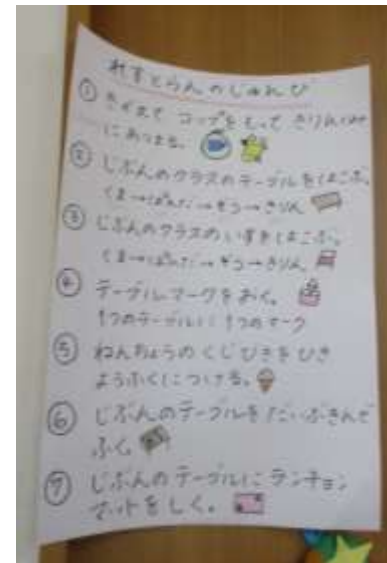 れすとらんのじゅんび
① コップをもって きりんぐみ
にあつまる。
② じぶんのクラスのテーブルをはこぶ。
くま→ぱんだ→ぞう→きりん
③ じぶんのクラスのいすをはこぶ。
くま→ぱんだ→ぞう→きりん
④ テーブルマークをおく。
1つのテーブルに1つのマーク
⑤ ねんちょうのくじびきをひき
ようふくにつける。
⑥ じぶんのテーブルをだいふきんで
ふく。
⑦ じぶんのテーブルにランチョン
マットをしく。